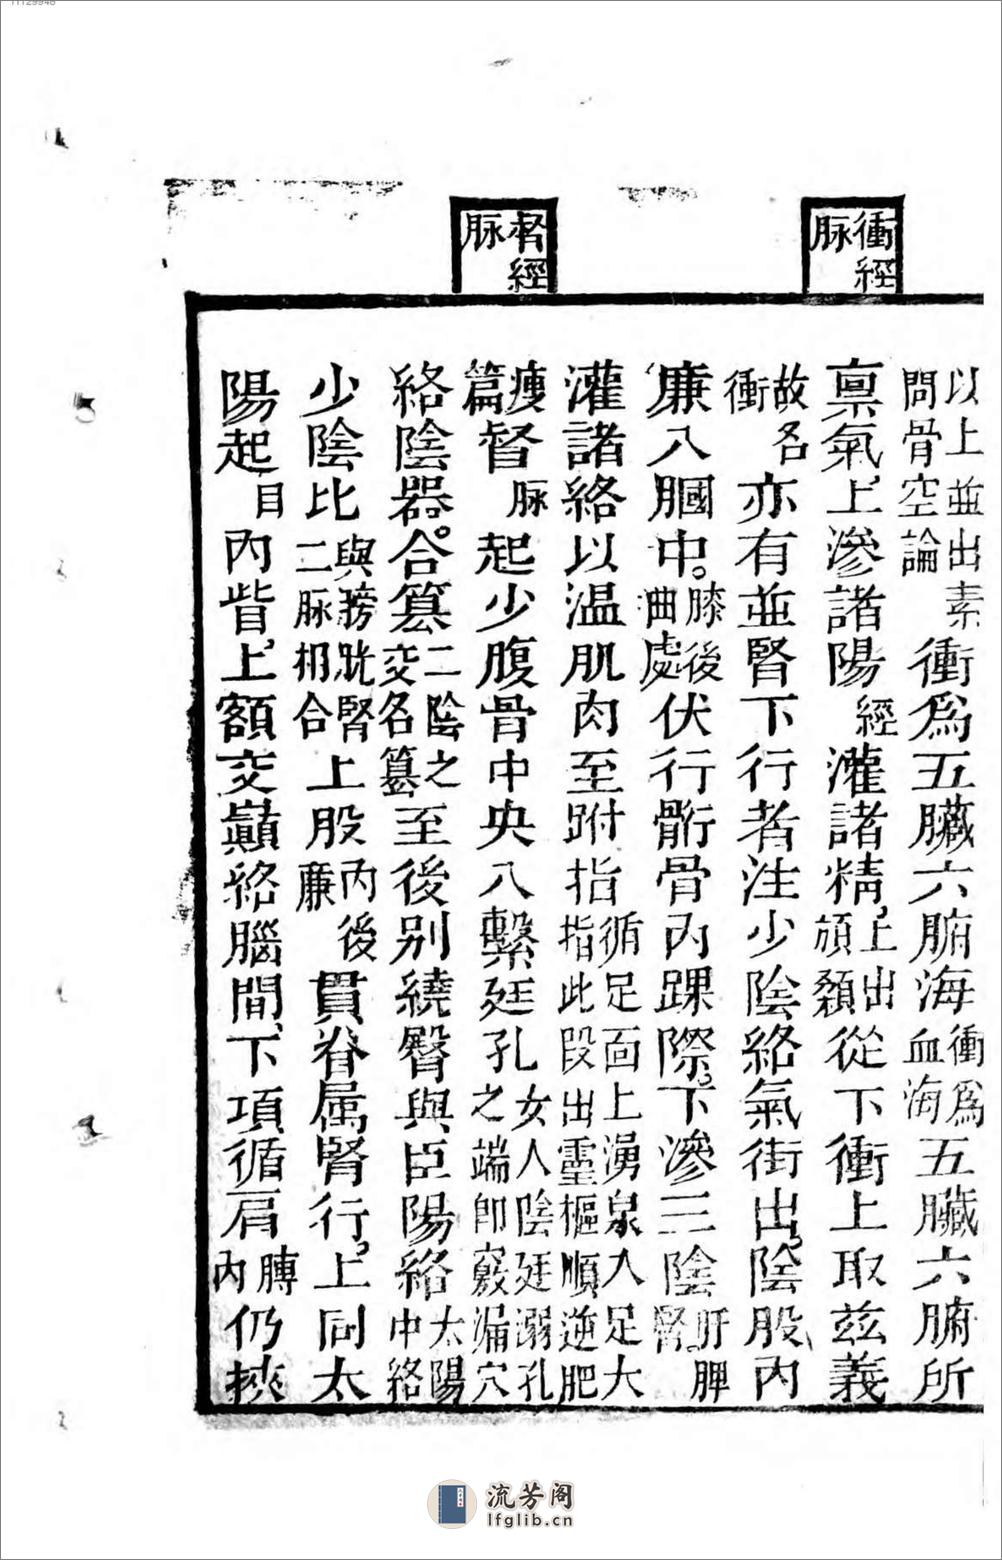 衝經脉
督經脉
以上並出素問骨空論衝爲五臟六腑海衝爲血海五臟六腑所
禀氣上滲諸陽經灌諸精上出頏顙從下衝上取兹義
故名衝亦有並腎下行者注少陰絡氣街出陰股內
廉入膕中膝後曲處伏行骭骨內踝際下滲三陰肝脾腎
灌諸絡以温肌肉至跗指循足面上湧泉入足大指此段出靈樞順逆肥
瘦篇督脉起少腹骨中央入繫廷孔女人陰廷溺孔之端即竅漏穴
絡陰器合篡二陰之交名篡至後別繞臀與臣陽絡太陽中絡
少陰比與膀胱腎二脉相合上股內後廉貫脊属腎行上同太
陽起目內眥上額交巔絡腦間下項循肩膊內仍挾
流芳阁
lfglib.cn